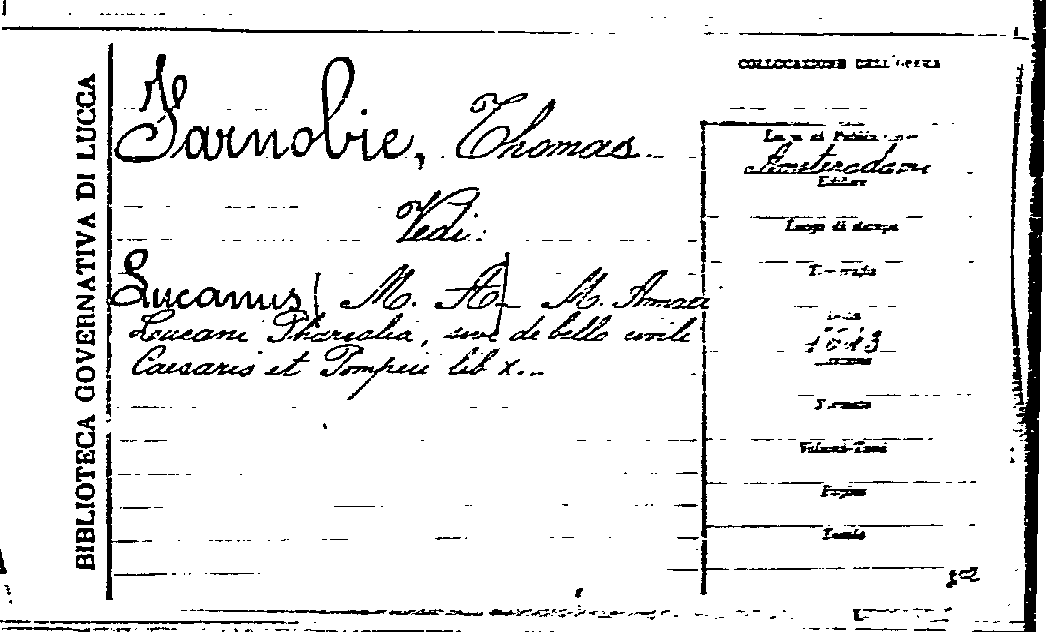 BIBLIOTECA GOVERNATIVA DI LUCCA
Farnobie, Thomas
Vedi:
Lucanus (M. A.) M. Annaei
Lucani Pharsalia, sive de bello civile
Caesaris et Pompeii lib x...
COLLOCAZIONE DELL'OPERA
Luogo di Pubblicazione
Amsterodami
Editore
Luogo di stampa
Data
1643
Formato
Volumi-Tomi
Pagine